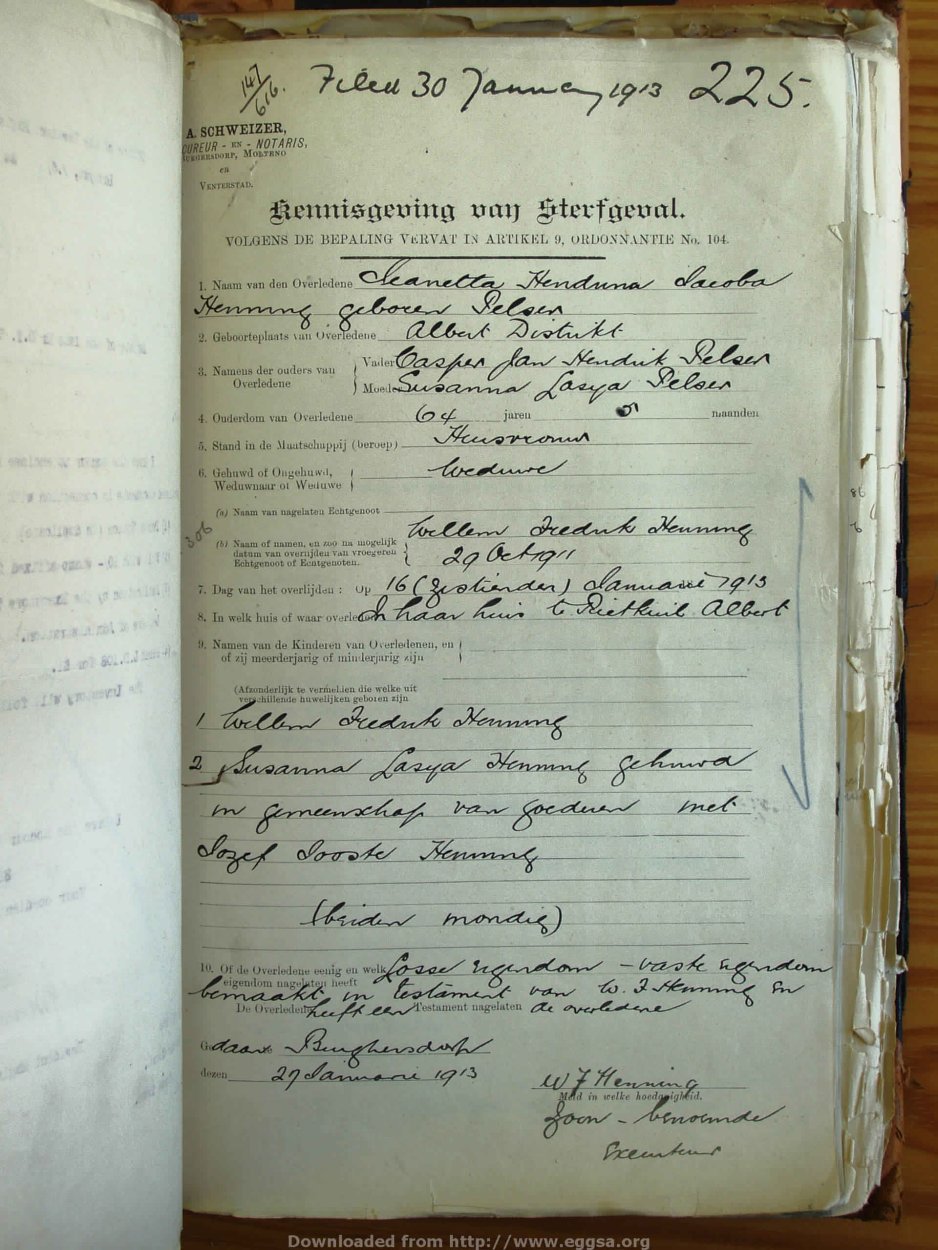 147/616.
Filed 30 January 1913 225.
A. SCHWEIZER,
CUREUR - EN - NOTARIS,
BURGERSDORP, MOLTENO
en
VENTERSTAD.
Kennisgeving van Sterfgeval.
VOLGENS DE BEPALING VERVAT IN ARTIKEL 9, ORDONNANTIE No. 104.
1. Naam van den Overledene Jeanetta Hendrina Jacoba
Henning geboren Pelser
2. Geboorteplaats van Overledene Albert Distrikt
3. Namens der ouders van Overledene Vader Casper Jan Hendrik Pelser
Moeder Susanna Lasya Pelser
4. Ouderdom van Overledene 64 jaren 5 maanden
5. Stand in de Maatschappij (beroep) Huisvrouw
6. Gehuwd of Ongehuwd, Weduwnaar of Weduwe Weduwe
(a) Naam van nagelaten Echtgenoot
306
(b) Naam of namen, en zoo na mogelijk Willem Fredrik Henning
datum van overlijden van vroegeren 29 Oct 1911
Echtgenoot of Echtgenoten.
7. Dag van het overlijden : Op 16 (Zestienden) Januarie 1913
8. In welk huis of waar overleden In haar huis te Rietkuil Albert
9. Namen van de Kinderen van Overledenen, en
of zij meerderjarig of minderjarig zijn
(Afzonderlijk te vermelden die welke uit
verschillende huwelijken geboren zijn
1 Willem Fredrik Henning
2 Susanna Lasya Henning gehuwd
in gemeenschap van goederen met
Jozef Jooste Henning
(beiden mondig)
10. Of de Overledene eenig en welk Losse eigendom - vaste eigendom
eigendom nagelaten heeft
bemaakt in testament van W. F Henning en
De Overledene heeft een Testament nagelaten de overledene
Gedaan te Burghersdorp
dezen 27 Januarie 1913
W F Henning
Meld in welke hoedanigheid.
Zoon - benoemde
Executeur
Downloaded from http://www.eggsa.org